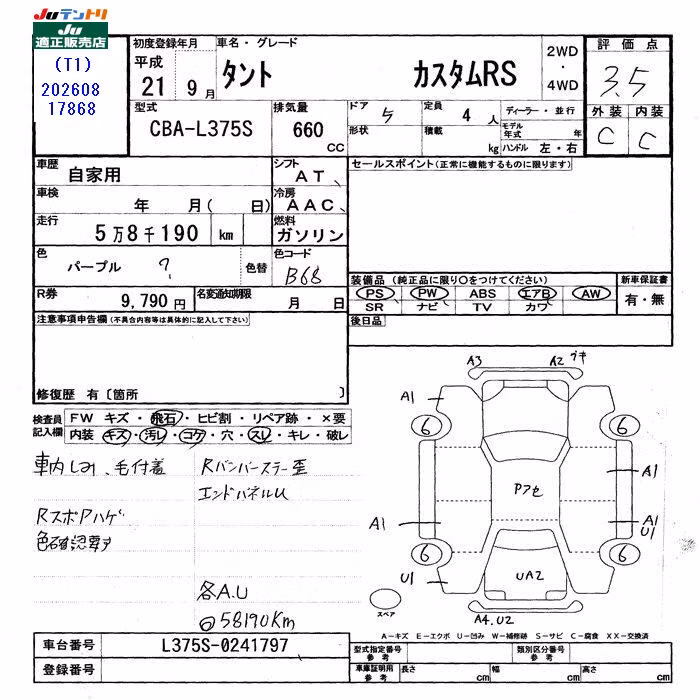 Juテントリ
Ju
適正販売店
(T1)
202608
17868
初度登録年月
平成
21 9月
車名・グレード
タント カスタムRS
2WD
・
4WD
評価点
3.5
外装 内装
C C
型式
CBA-L375S
排気量
660
CC
ドア 5
形状
定員 4 人
積載 kg
ディーラー・並行
モデル年式 年
ハンドル 左・右
車歴
自家用
シフト
AT、
セールスポイント(正常に機能するものに限ります)
車検
年 月( 日)
冷房
AAC、
走行
5万8千190 km
燃料
ガソリン
色
パープル ?
色替
色コード
B68
R券
9,790円
名変通知期限
月 日
装備品(純正品に限り○をつけてください)
PS PW ABS エアB AW
SR ナビ TV カワ
新車保証書
有・無
後日品
注意事項申告欄(不具合内容等は具体的に記入して下さい)
修復歴 有〔箇所 〕
検査員
記入欄
FW キズ・飛石・ヒビ割・リペア跡・×要
内装 キズ・汚レ・コゲ・穴・スレ・キレ・破レ
車内しみ、毛付着
RスポPハゲ
色確認要す
Rバンパーステー歪
エンドパネルU
各A.U
58190Km
A3 A2 ヅキ
A1
6 6
Pアセ A1
A1 A1
U1
6 6
U1 UA2
スペア
A4.U2
A-キズ E-エクボ U-凹み W-補修跡 S-サビ C-腐食 XX-交換済
車台番号 L375S-0241797
登録番号
型式指定番号
参考
類別区分番号
参考
車庫証明用
参考
長さ cm 幅 cm 高さ cm